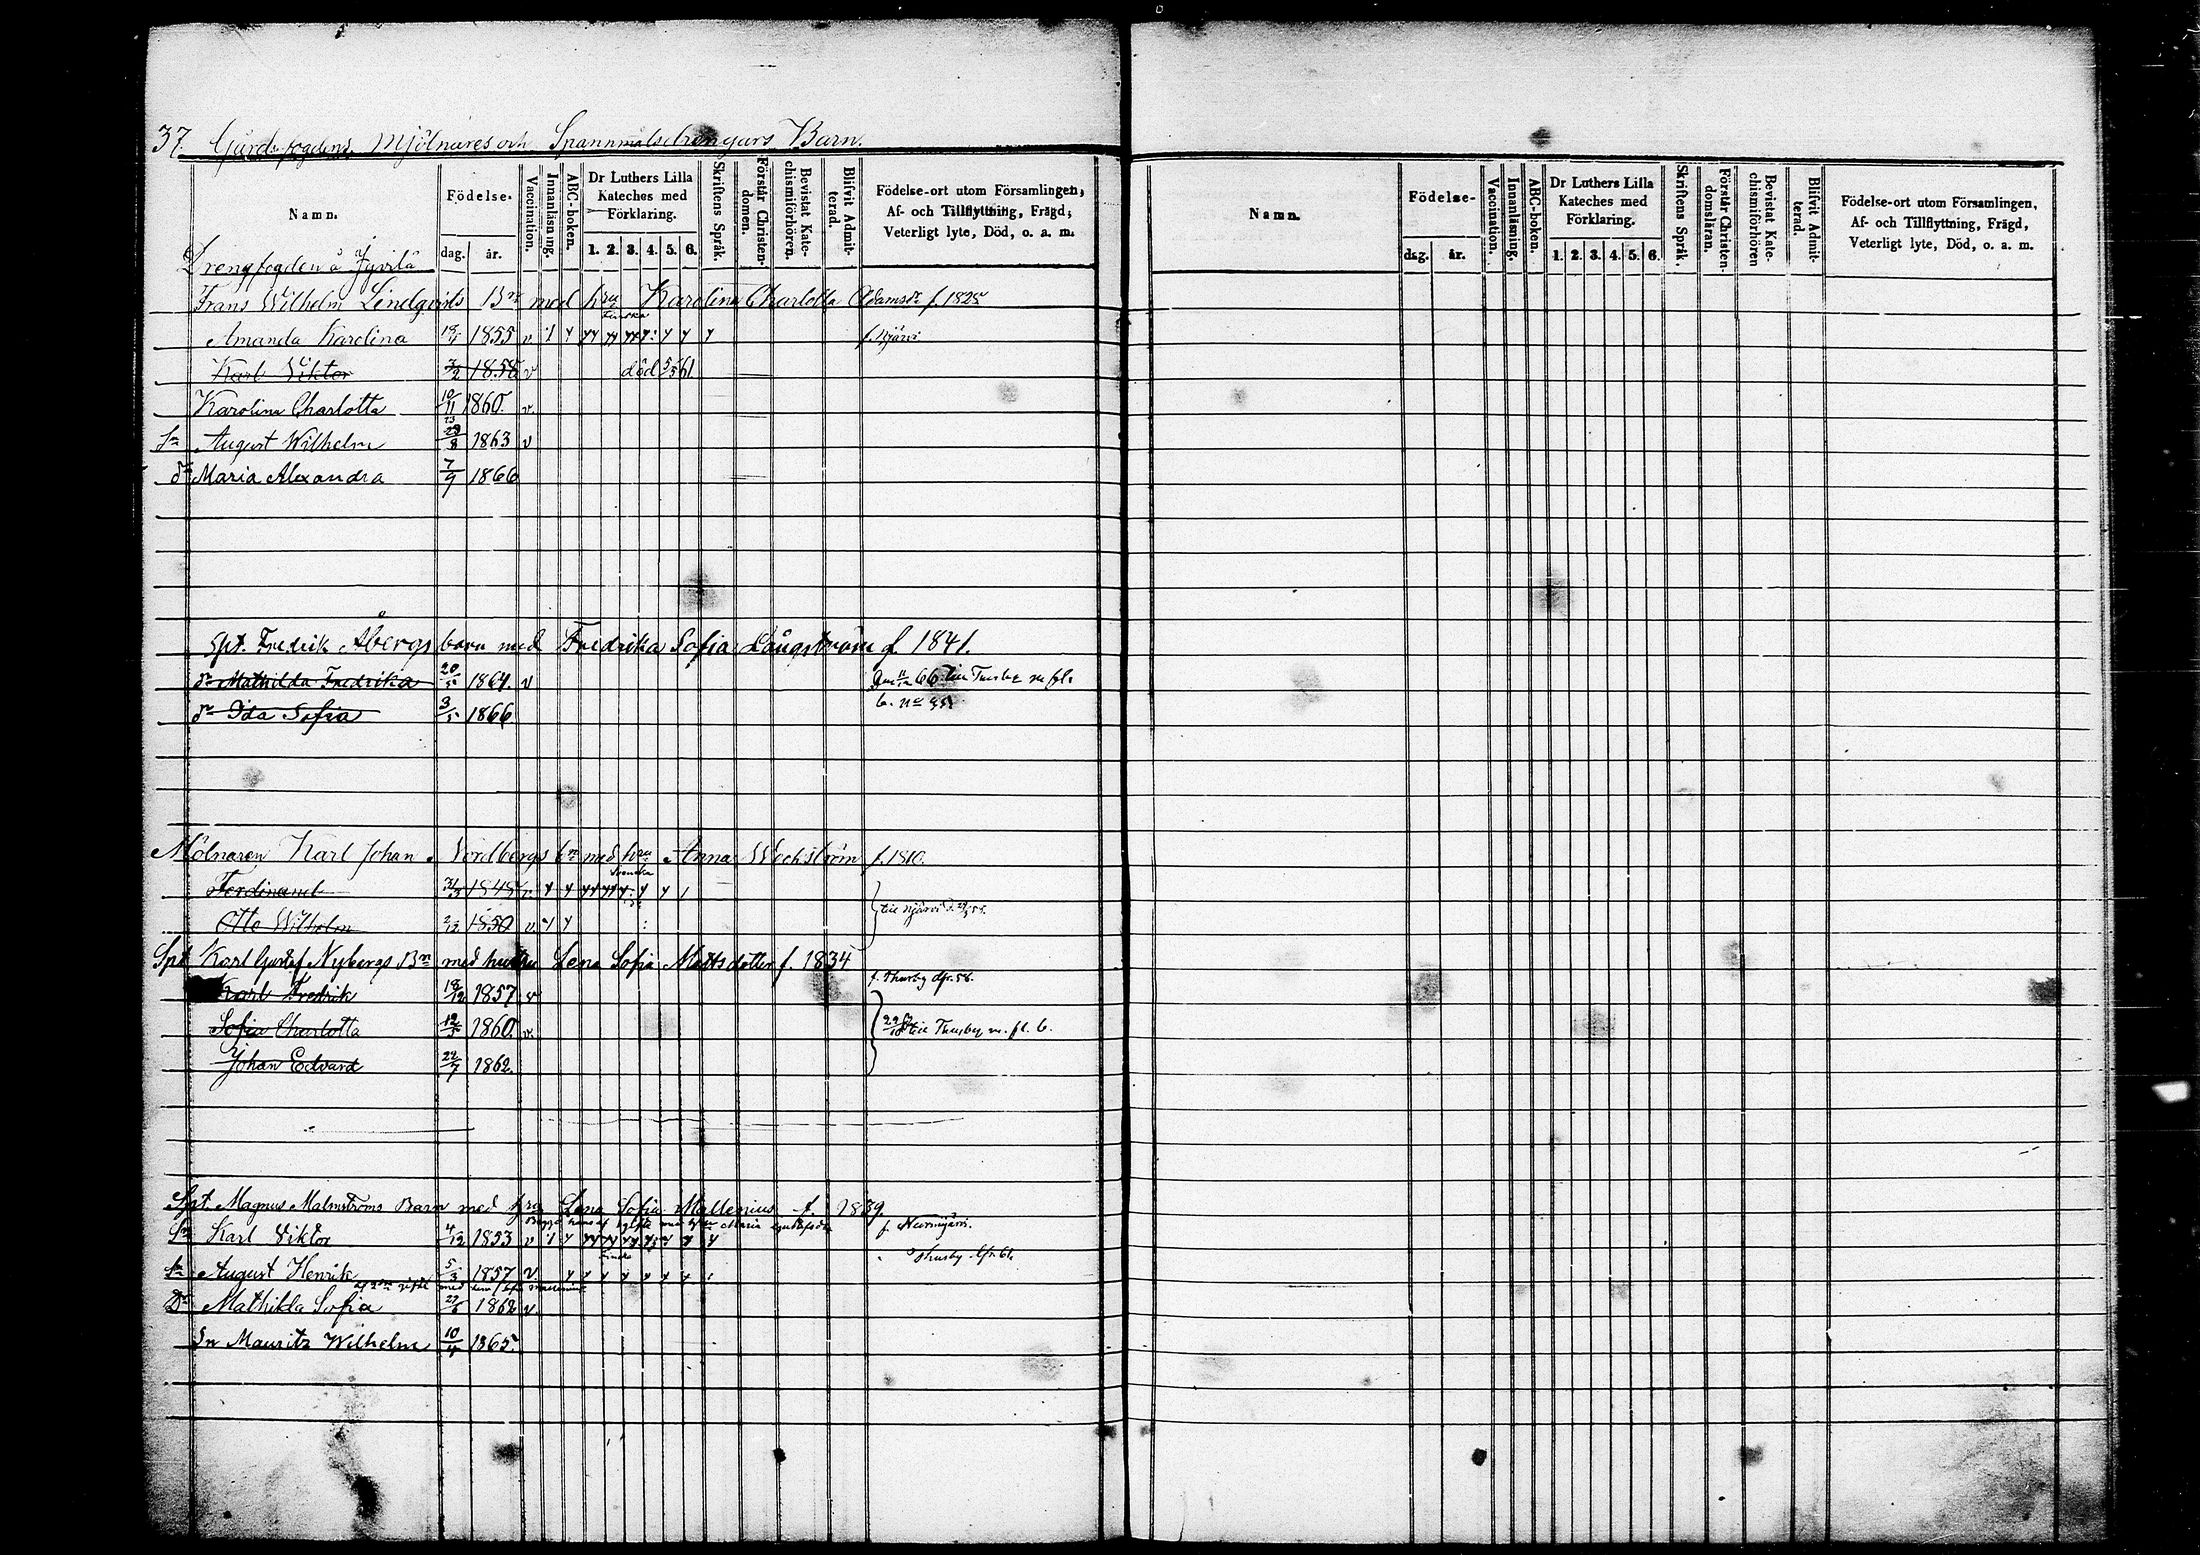 37. Gårdsfogdens, Mjölnares och Spannmålsdrengars Barn.
Namn. Födelse- dag. år. Vaccination. Innanläsning. ABC-boken. Dr Luthers Lilla Kateches med Förklaring. 1. 2. 3. 4. 5. 6. Skriftens Språk. Förstår Christendomen. Bevistat Katechismiförhören. Blifvit Admitterad. Födelse-ort utom Församlingen, Af- och Tillflyttning, Frägd, Veterligt lyte, Död, o. a. m.
Drengfogden å Jyvilä
Frans Wilhelm Lindqvists Bn med hru Karolina Charlotta Adamsdr f. 1825
Finska
Amanda Karolina 1855 v f. Njärvi
Karl Viktor 3/2 1858 v död 5/5 61.
Karolina Charlotta 10/11 1860. v.
Sn August Wilhelm 23/8 1863 v
dr Maria Alexandra 7/9 1866
Spt. Fredrik Åbergs barn med Fredrika Sofia Långström f. 1841.
dr Mathilda Fredrika 20/11 1864. v 66 till Thusby m fl.
dr Ida Sofia 3/5 1866 b. no
Mölnaren Karl Johan Nordbergs bn med hru Anna Weckström f. 1810.
Svenska
Ferdinand 1848 v.
Otto Wilhelm 2/12 1850 v. till Njärvi
Spt Karl Gustaf Nybergs Bn med hustru Lena Sofia Mattsdotter f. 1834
Karl Fredrik 18/12 1857 v f. Thusby dfr. 58.
Sofia Charlotta 12/5 1860. v. till Thusby m. fl. b.
Johan Edvard 22/7 1862.
Spt. Magnus Malmströms Barn med hru Lena Sofia Mallenius f. 1839.
Sn Karl Viktor 4/12 1853 v f. Nurmijärvi.
Finska
Sn August Henrik 5/3 1857 v. Thusby dfr. 61.
Dr Mathilda Sofia 27/6 1862 v.
Sn Mauritz Wilhelm 10/4 1865.
Namn. Födelse- dag. år. Vaccination. Innanläsning. ABC-boken. Dr Luthers Lilla Kateches med Förklaring. 1. 2. 3. 4. 5. 6. Skriftens Språk. Förstår Christendomsläran. Bevistat Katechismiförhören Blifvit Admitterad. Födelse-ort utom Församlingen, Af- och Tillflyttning, Frägd, Veterligt lyte, Död, o. a. m.